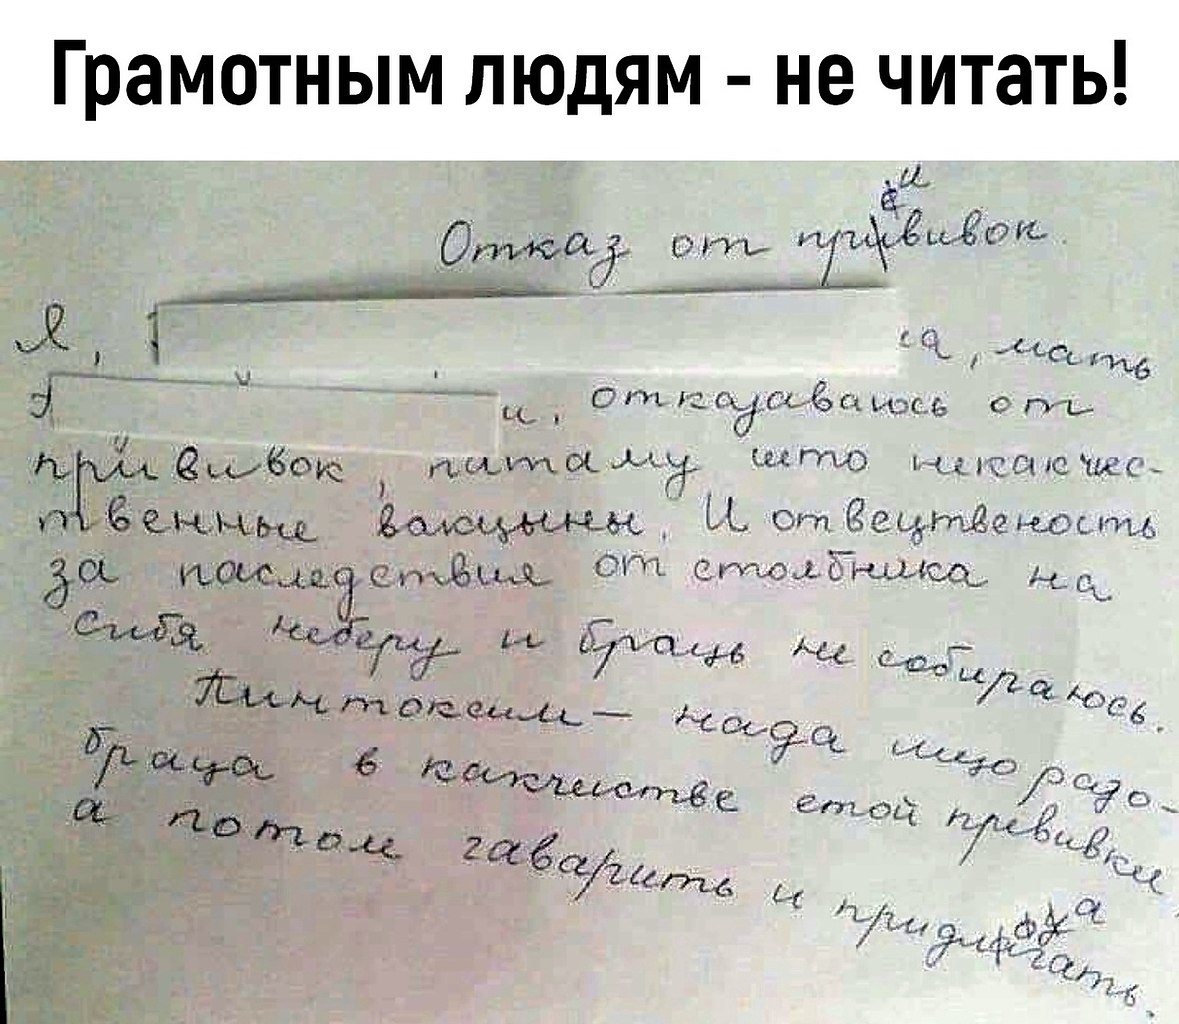 Грамотным людям - не читать!
Отказ от прививок.
Я, са, мать
и, отказаваюсь от
прививок, питаму што никакчес-
твенные вакцыны. И отвецтвеность
за паследствия от столбника на
сибя неберу и браць не собираюсь.
Пинтоксим — нада ищо разо-
браца в какчистве етой прививки,
а потом гаварить и придлагать.